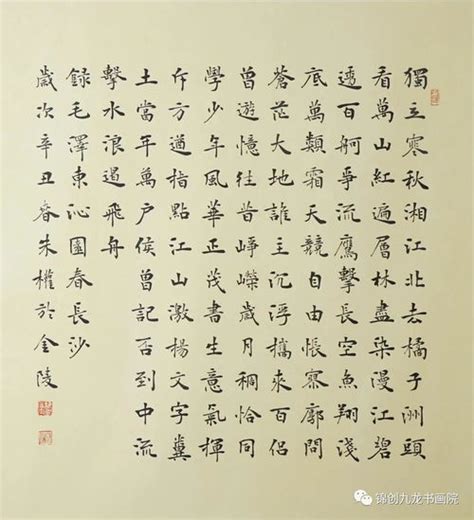 獨立寒秋湘江北去橘子洲頭
看萬山紅遍層林盡染漫江碧
透百舸爭流鷹擊長空魚翔淺
底萬類霜天競自由悵寥廓問
蒼茫大地誰主沉浮攜來百侶
曾遊憶往昔崢嶸歲月稠恰同
學少年風華正茂書生意氣揮
斥方遒指點江山激楊文字糞
土當年萬户侯曾記否到中流
擊水浪遏飛舟
録毛澤東沁園春長沙
歲次辛丑春朱權於金陵
锦创九龙书画院